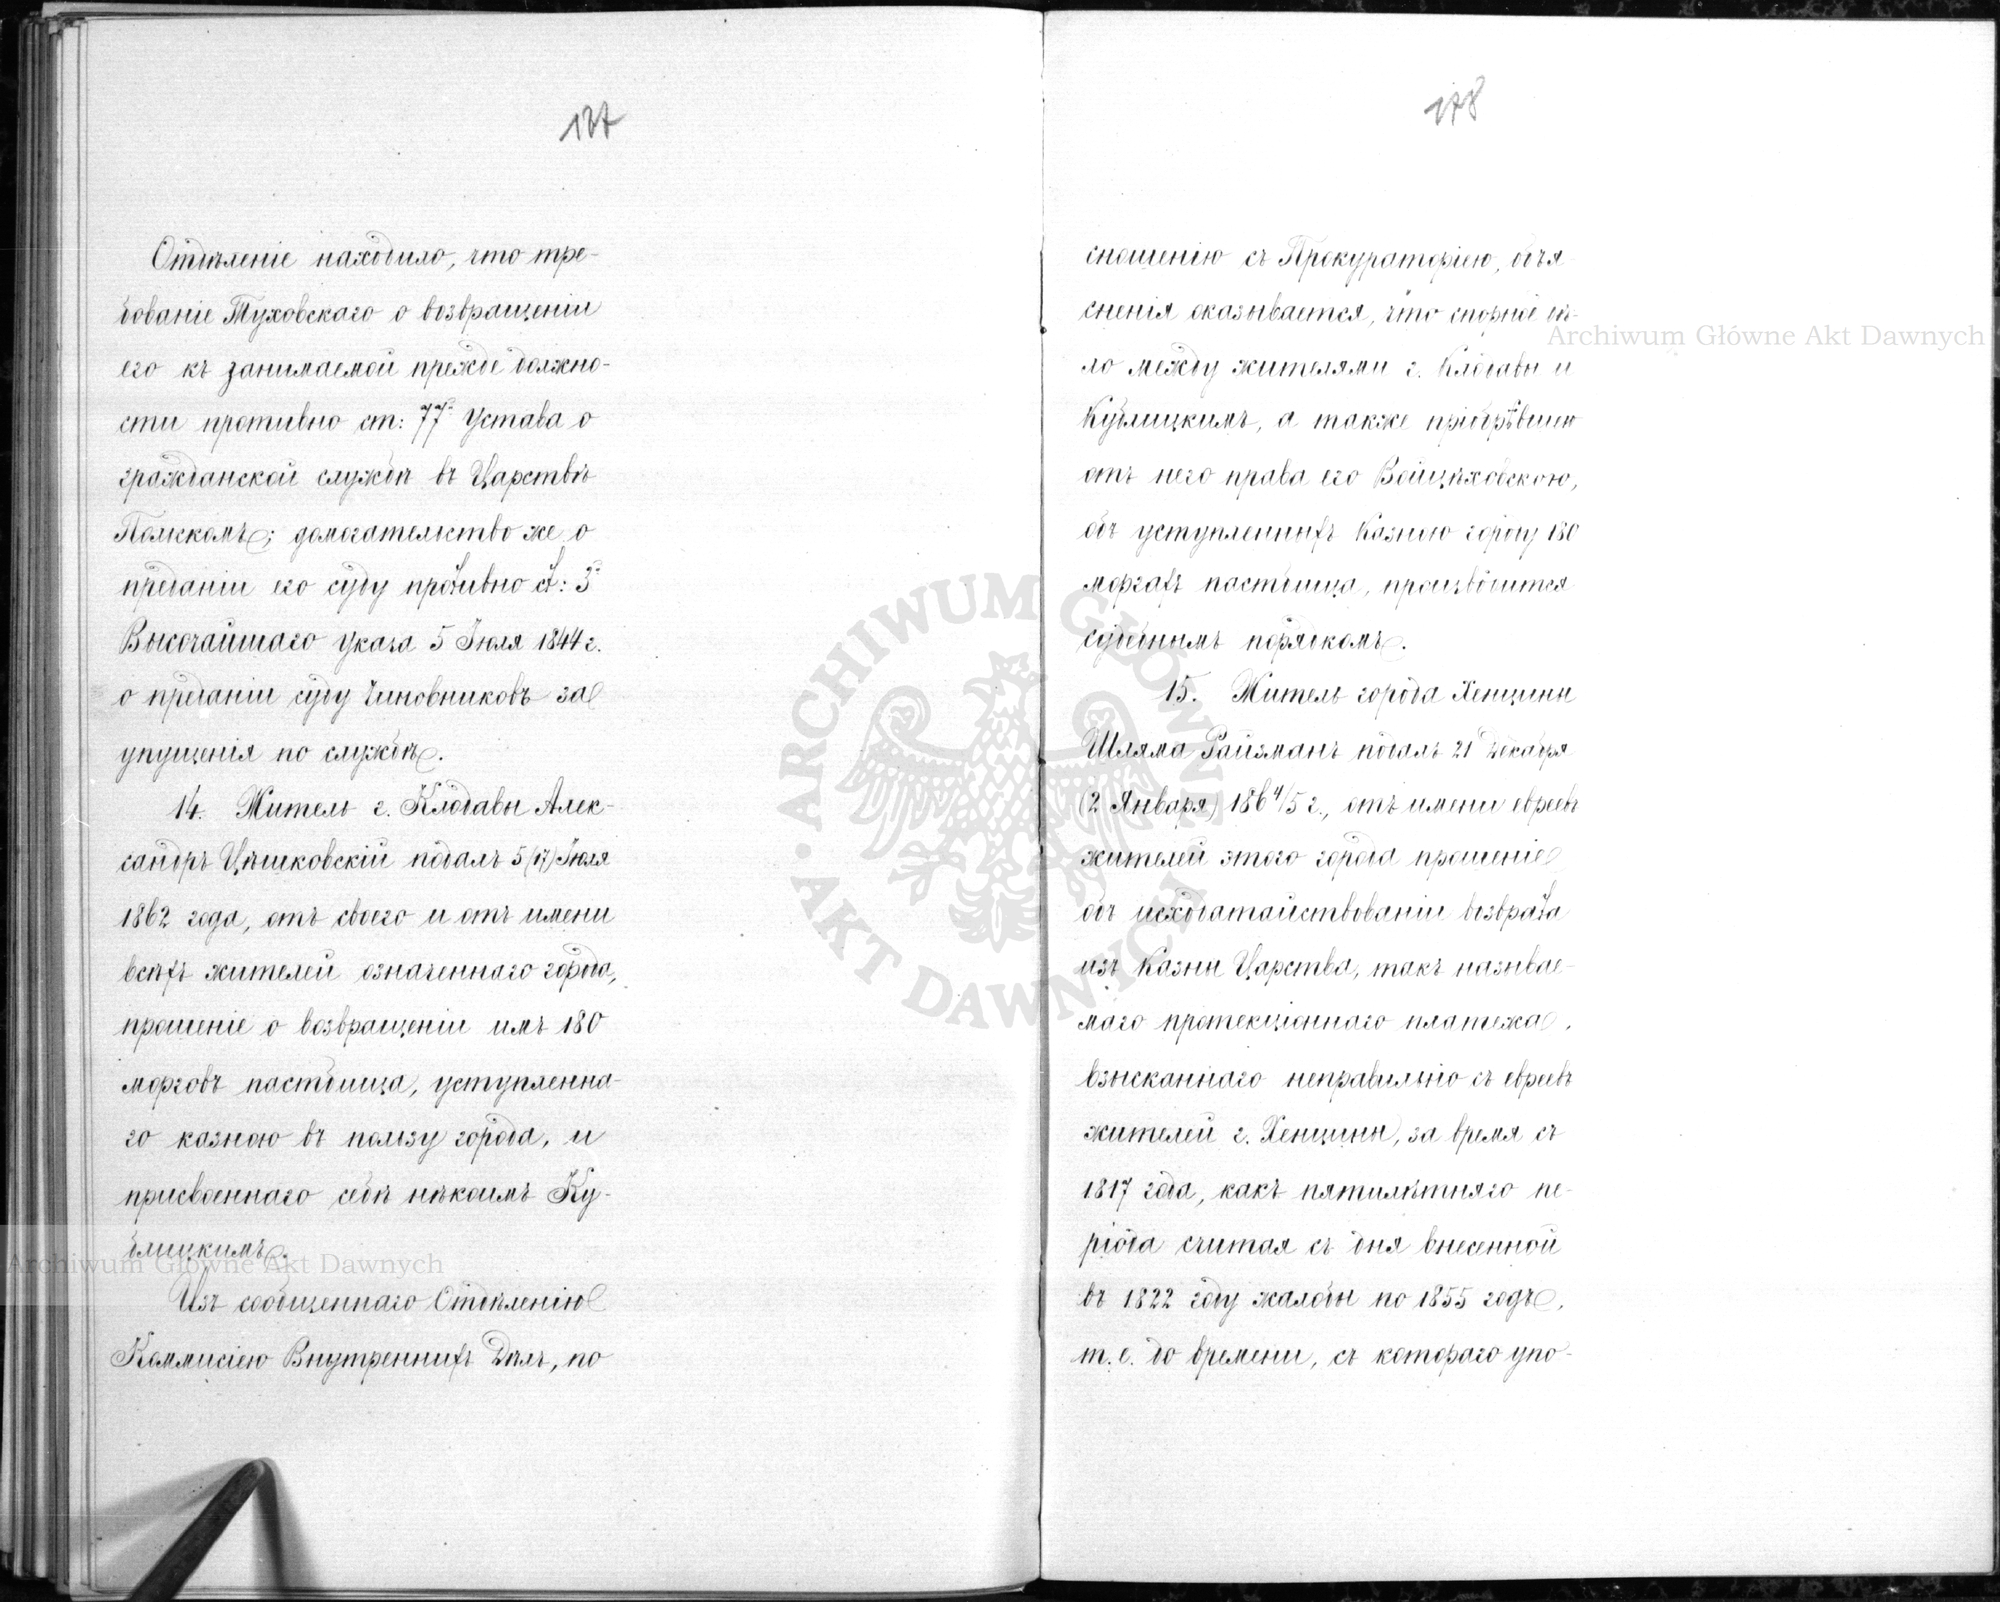 Отдѣленіе находило, что тре-
бованіе Туховскаго о возвращеніи
его къ занимаемой прежде должно-
сти противно ст: 77й Устава о
гражданской службѣ въ Царствѣ
Польскомъ; домогательство же о
преданіи его суду противно ст: 3й
Высочайшаго Указа 5 Іюля 1844 г.
о преданіи суду Чиновниковъ за
упущенія по службѣ.
14. Житель г. Клодавы Алек-
сандръ Цѣшковскій подалъ 5/17) Іюля
1862 года, отъ своего и отъ имени
всѣхъ жителей означеннаго города,
прошеніе о возвращеніи имъ 180
морговъ пастбища, уступленна-
го казною въ пользу города, и
присвоеннаго себѣ нѣкоимъ Ку-
блицкимъ.
Изъ сообщеннаго Отдѣленію
Коммисіею Внутреннихъ Дѣлъ, по
178
сношенію съ Прокураторіею, объя-
сненія оказывается, что спорное дѣ-
ло между жителями г. Клодавы и
Кублицкимъ, а также пріобрѣвшею
отъ него права его Войцѣховскою,
объ уступленныхъ Казною городу 180
моргахъ пастбища, производится
судебнымъ порядкомъ.
15. Житель города Хенцины
Шляма Райзманъ подалъ 21 Декабря
(2 Января) 1864/5 г., отъ имени евреевъ
жителей этого города прошеніе
объ исходатайствованіи возврата
изъ Казны Царства, такъ называе-
маго протекціоннаго платежа,
взысканнаго неправильно съ евреевъ
жителей г. Хенцины, за время съ
1817 года, какъ пятилѣтняго пе-
ріода считая съ дня внесенной
въ 1822 году жалобы по 1855 годъ,
т. е. до времени, съ котораго упо-
Archiwum Główne Akt Dawnych
Archiwum Główne Akt Dawnych
ARCHIWUM GŁÓWNE
AKT DAWNYCH